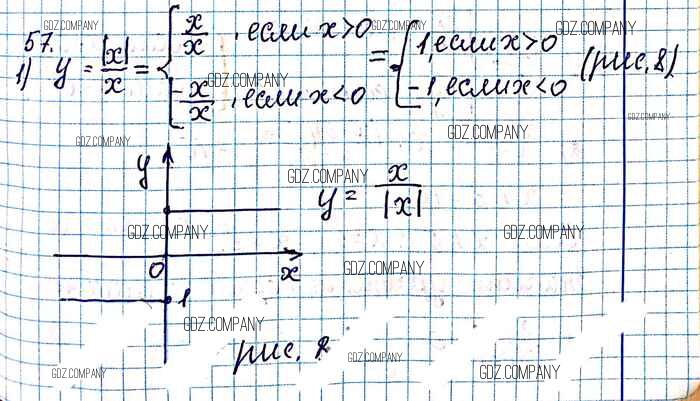 57.
1) y = |x|/x = { x/x, если x>0 = { 1, если x>0
-x/x, если x<0 -1, если x<0 (рис. 8)
y
y = x/|x|
0 x
-1
рис. 8
GDZ.COMPANY
GDZ.COMPANY
GDZ.COMPANY
GDZ.COMPANY
GDZ.COMPANY
GDZ.COMPANY
GDZ.COMPANY
GDZ.COMPANY
GDZ.COMPANY
GDZ.COMPANY
GDZ.COMPANY
GDZ.COMPANY
GDZ.COMPANY
GDZ.COMPANY